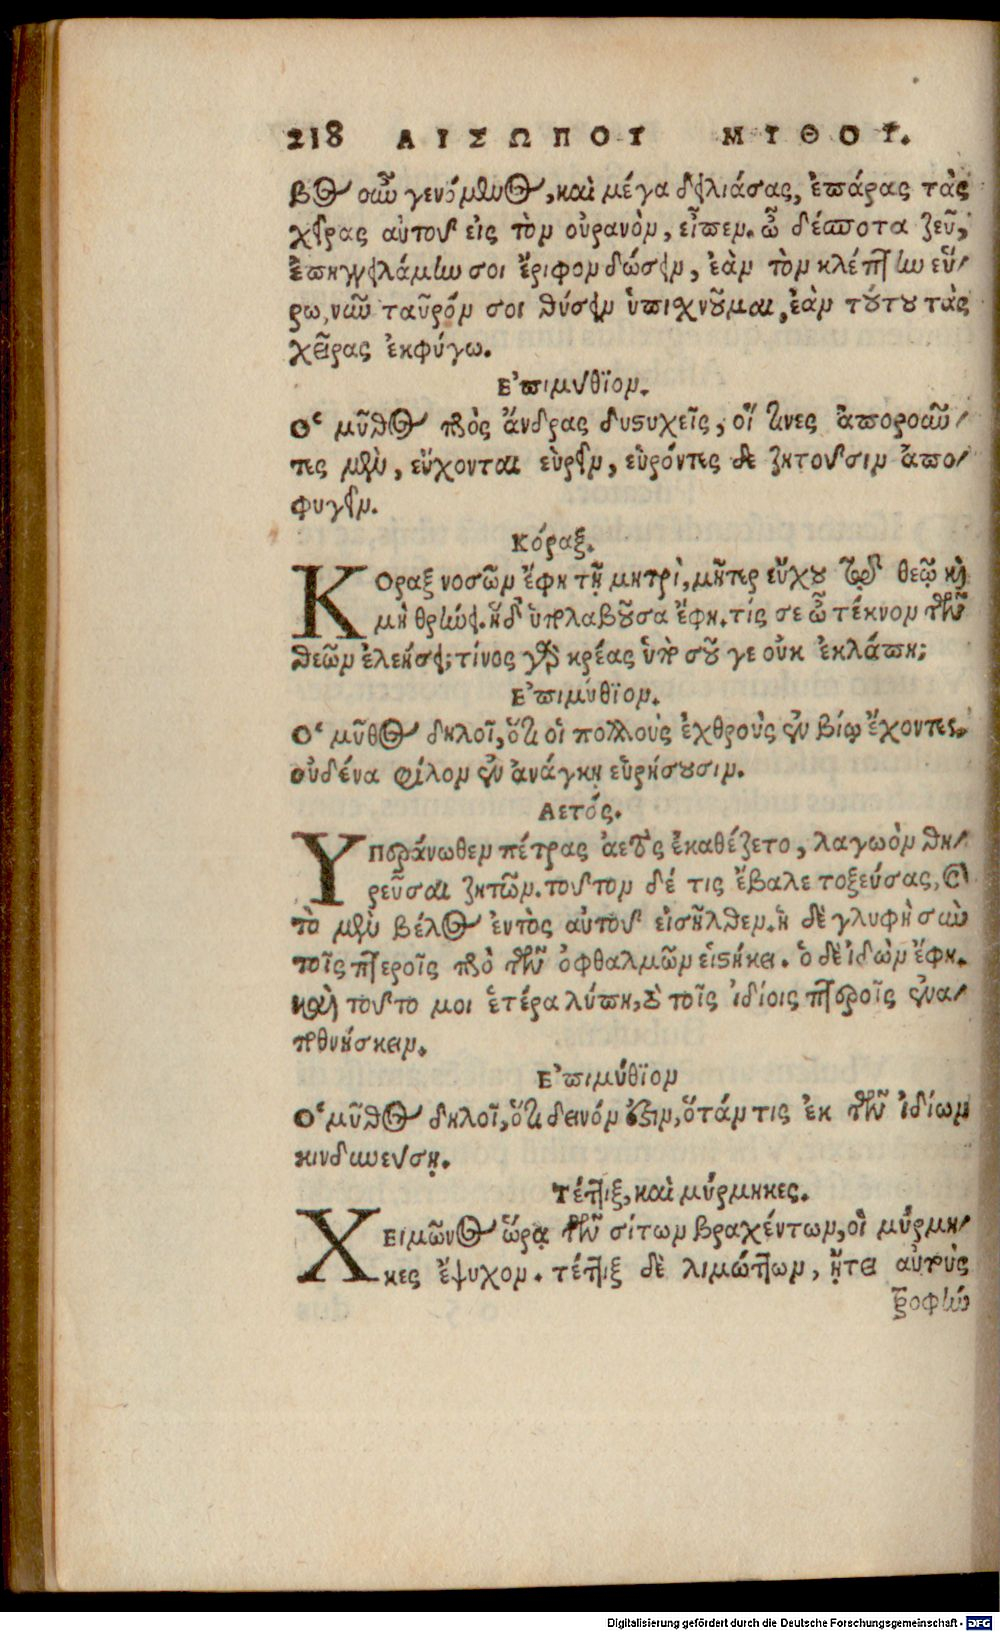 218 ΑΙΣΩΠΟΥ ΜΥΘΟΙ.
βος οὖν γενόμενος, καὶ μέγα δειλιάσας, ἐπάρας τὰς
χεῖρας αὐτοῦ εἰς τὸν οὐρανὸν, εἶπεν. ὦ δέσποτα ζεῦ,
ἐπηγγειλάμην σοι ἔριφον δώσειν, ἐὰν τὸν κλέπτην εὕ-
ρω, νῦν ταῦρόν σοι θύσειν ὑπισχνοῦμαι, ἐὰν τούτου τὰς
χεῖρας ἐκφύγω.
Ἐπιμύθϊον.
Ὁ μῦθος πρὸς ἄνδρας δυστυχεῖς, οἵ τινες ἀποροῦν-
τες μὲν, εὔχονται εὑρεῖν, εὑρόντες δὲ ζητοῦσιν ἀπο-
φυγεῖν.
Κόραξ.
Κόραξ νοσῶν ἔφη τῇ μητρὶ, μῆτερ εὔχου τῷ θεῷ καὶ
μὴ θρήνει. ἡ δ' ὑπολαβοῦσα ἔφη. τίς σε ὦ τέκνον τῶν
θεῶν ἐλεήσει; τίνος γὰρ κρέας ὑπὸ σοῦ γε οὐκ ἐκλάπη;
Ἐπιμύθϊον.
Ὁ μῦθος δηλοῖ, ὅτι οἱ πολλοὺς ἐχθροὺς ἐν βίῳ ἔχοντες.
οὐδένα φίλον ἐν ἀνάγκῃ εὑρήσουσιν.
Αετός.
Υπεράνωθεν πέτρας ἀετὸς ἐκαθέζετο, λαγωὸν θη-
ρεῦσαι ζητῶν. τοῦτον δέ τις ἔβαλε τοξεύσας, καὶ
τὸ μὲν βέλος ἐντὸς αὐτοῦ εἰσῆλθεν. ἡ δὲ γλυφὴ σὺν
τοῖς πτεροῖς πρὸ τῶν ὀφθαλμῶν εἱστήκει. ὁ δὲ ἰδὼν ἔφη.
καὶ τοῦτο μοι ἑτέρα λύπη, τὸ τοῖς ἰδίοις πτεροῖς ἐναπο-
θνήσκειν.
Ἐπιμύθϊον
Ὁ μῦθος δηλοῖ, ὅτι δεινόν ἐστιν, ὅτάν τις ἐκ τῶν ἰδίων
κινδυνεύσῃ.
Τέττιξ, καὶ μύρμηκες.
Χειμῶνος ὥρᾳ τῶν σίτων βραχέντων, οἱ μύρμη-
κες ἔψυχον. τέττιξ δὲ λιμώττων, ᾔτει αὐτοὺς
τροφήν
Digitalisierung gefördert durch die Deutsche Forschungsgemeinschaft - DFG